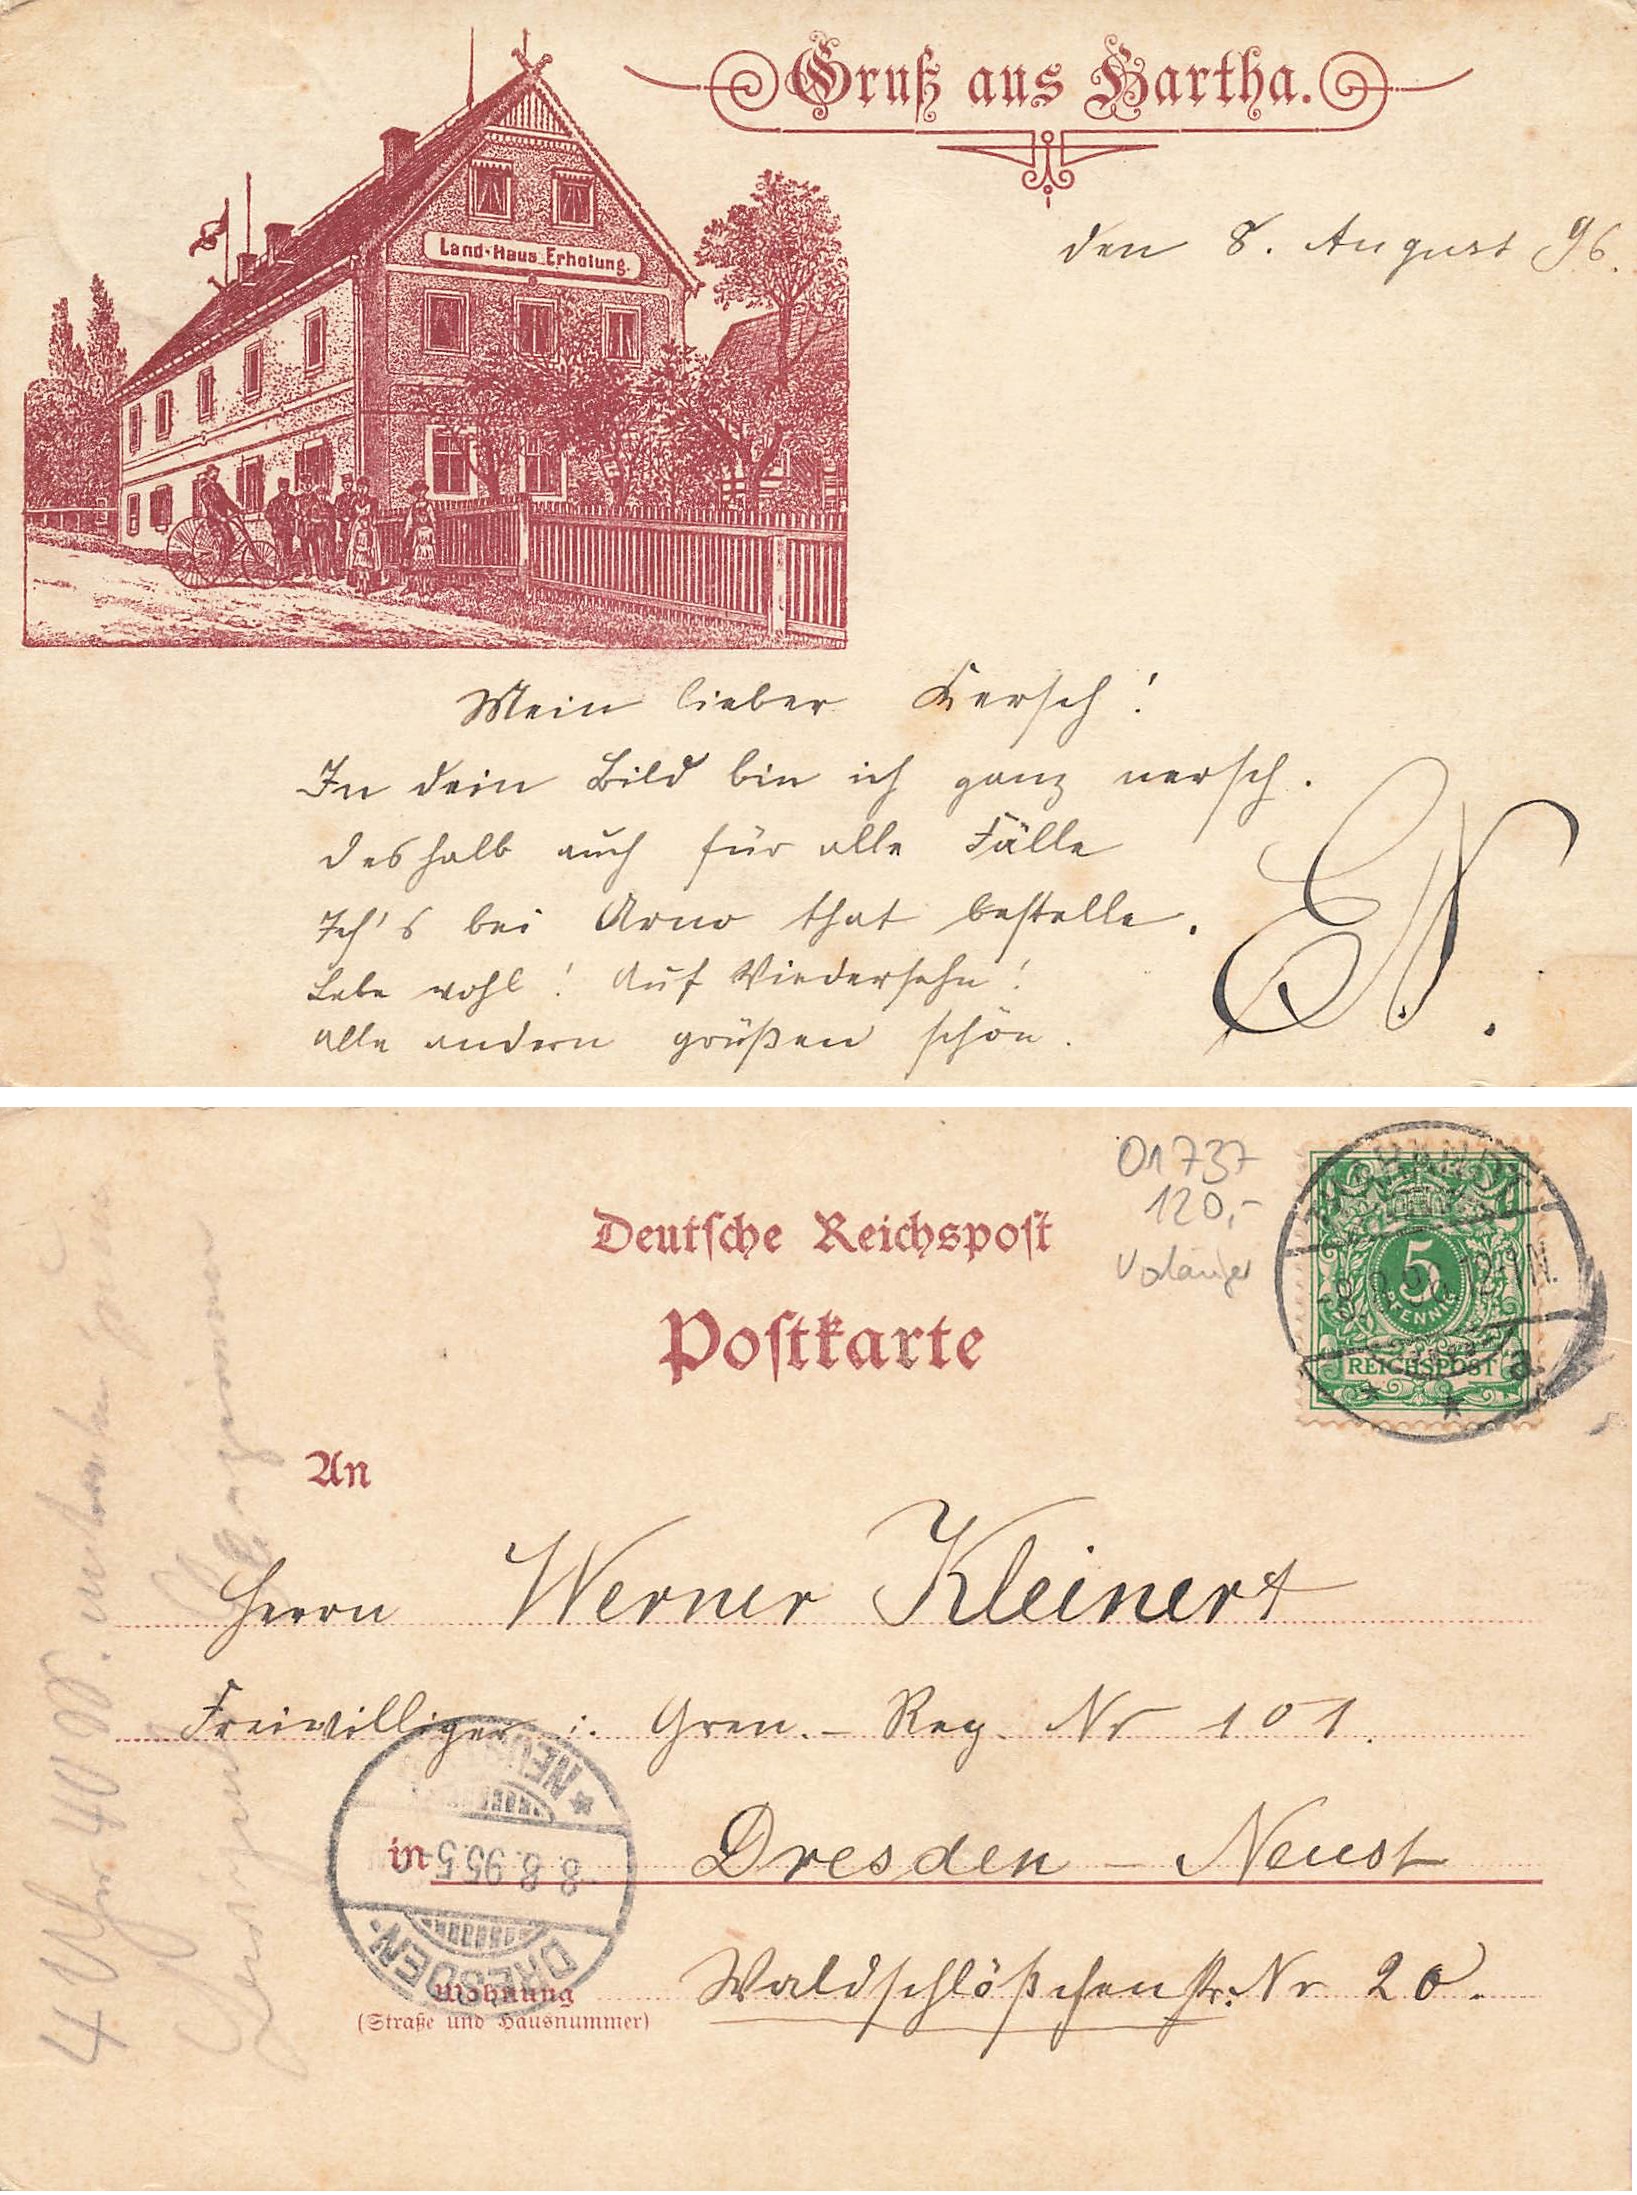 Gruß aus Hartha.
Land-Haus Erholung.
den 8. August 96.
Mein lieber Kersch!
In dein Bild bin ich ganz nersch.
deshalb auch für alle Fälle
Ich's bei Arno that bestelle.
Lebe wohl! Auf Wiedersehn!
alle andern grüßen schön.
EN.
01737
120,-
Vorläufer
Deutsche Reichspost
Postkarte
5
PFENNIG
REICHSPOST
a
An
Herrn Werner Kleinert
Freiwilliger i. Gren.-Reg. Nr 101.
in Dresden-Neust
Wohnung
(Straße und Hausnummer)
Waldschlößchenstr. Nr 20.
DRESDEN.
NEUST
4 Uhr 40